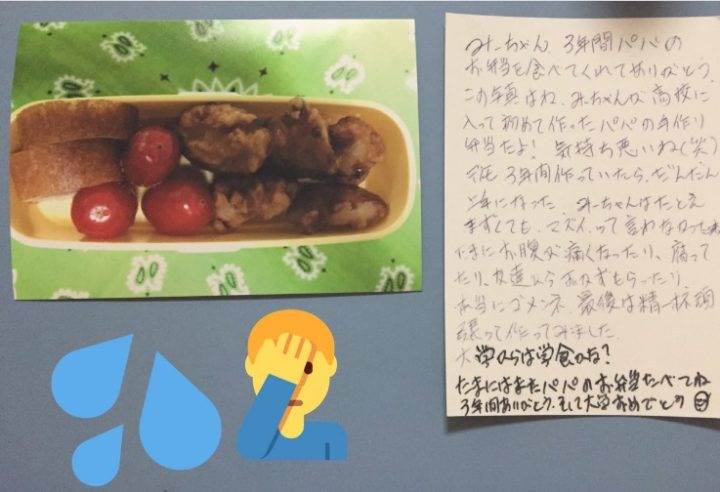 みーちゃん 3年間パパの
お弁当を食べてくれてありがとう
この写真はね、みーちゃんが高校に
入って初めて作ったパパの手作り
弁当だよ! 気持ち悪いね(笑)
でも 3年間作っていたら、だんだん
上手になった みーちゃんはたとえ
まずくても、マズイって言わなかったね
ときにお腹が痛くなったり、腐って
たり、友達からおかずもらったり、
本当にゴメンネ 最後は精一杯頑
張って作ってみました
大学からは学食かな?
たまにはまたパパのお弁当たべてね
3年間ありがとう、そして大学おめでとう